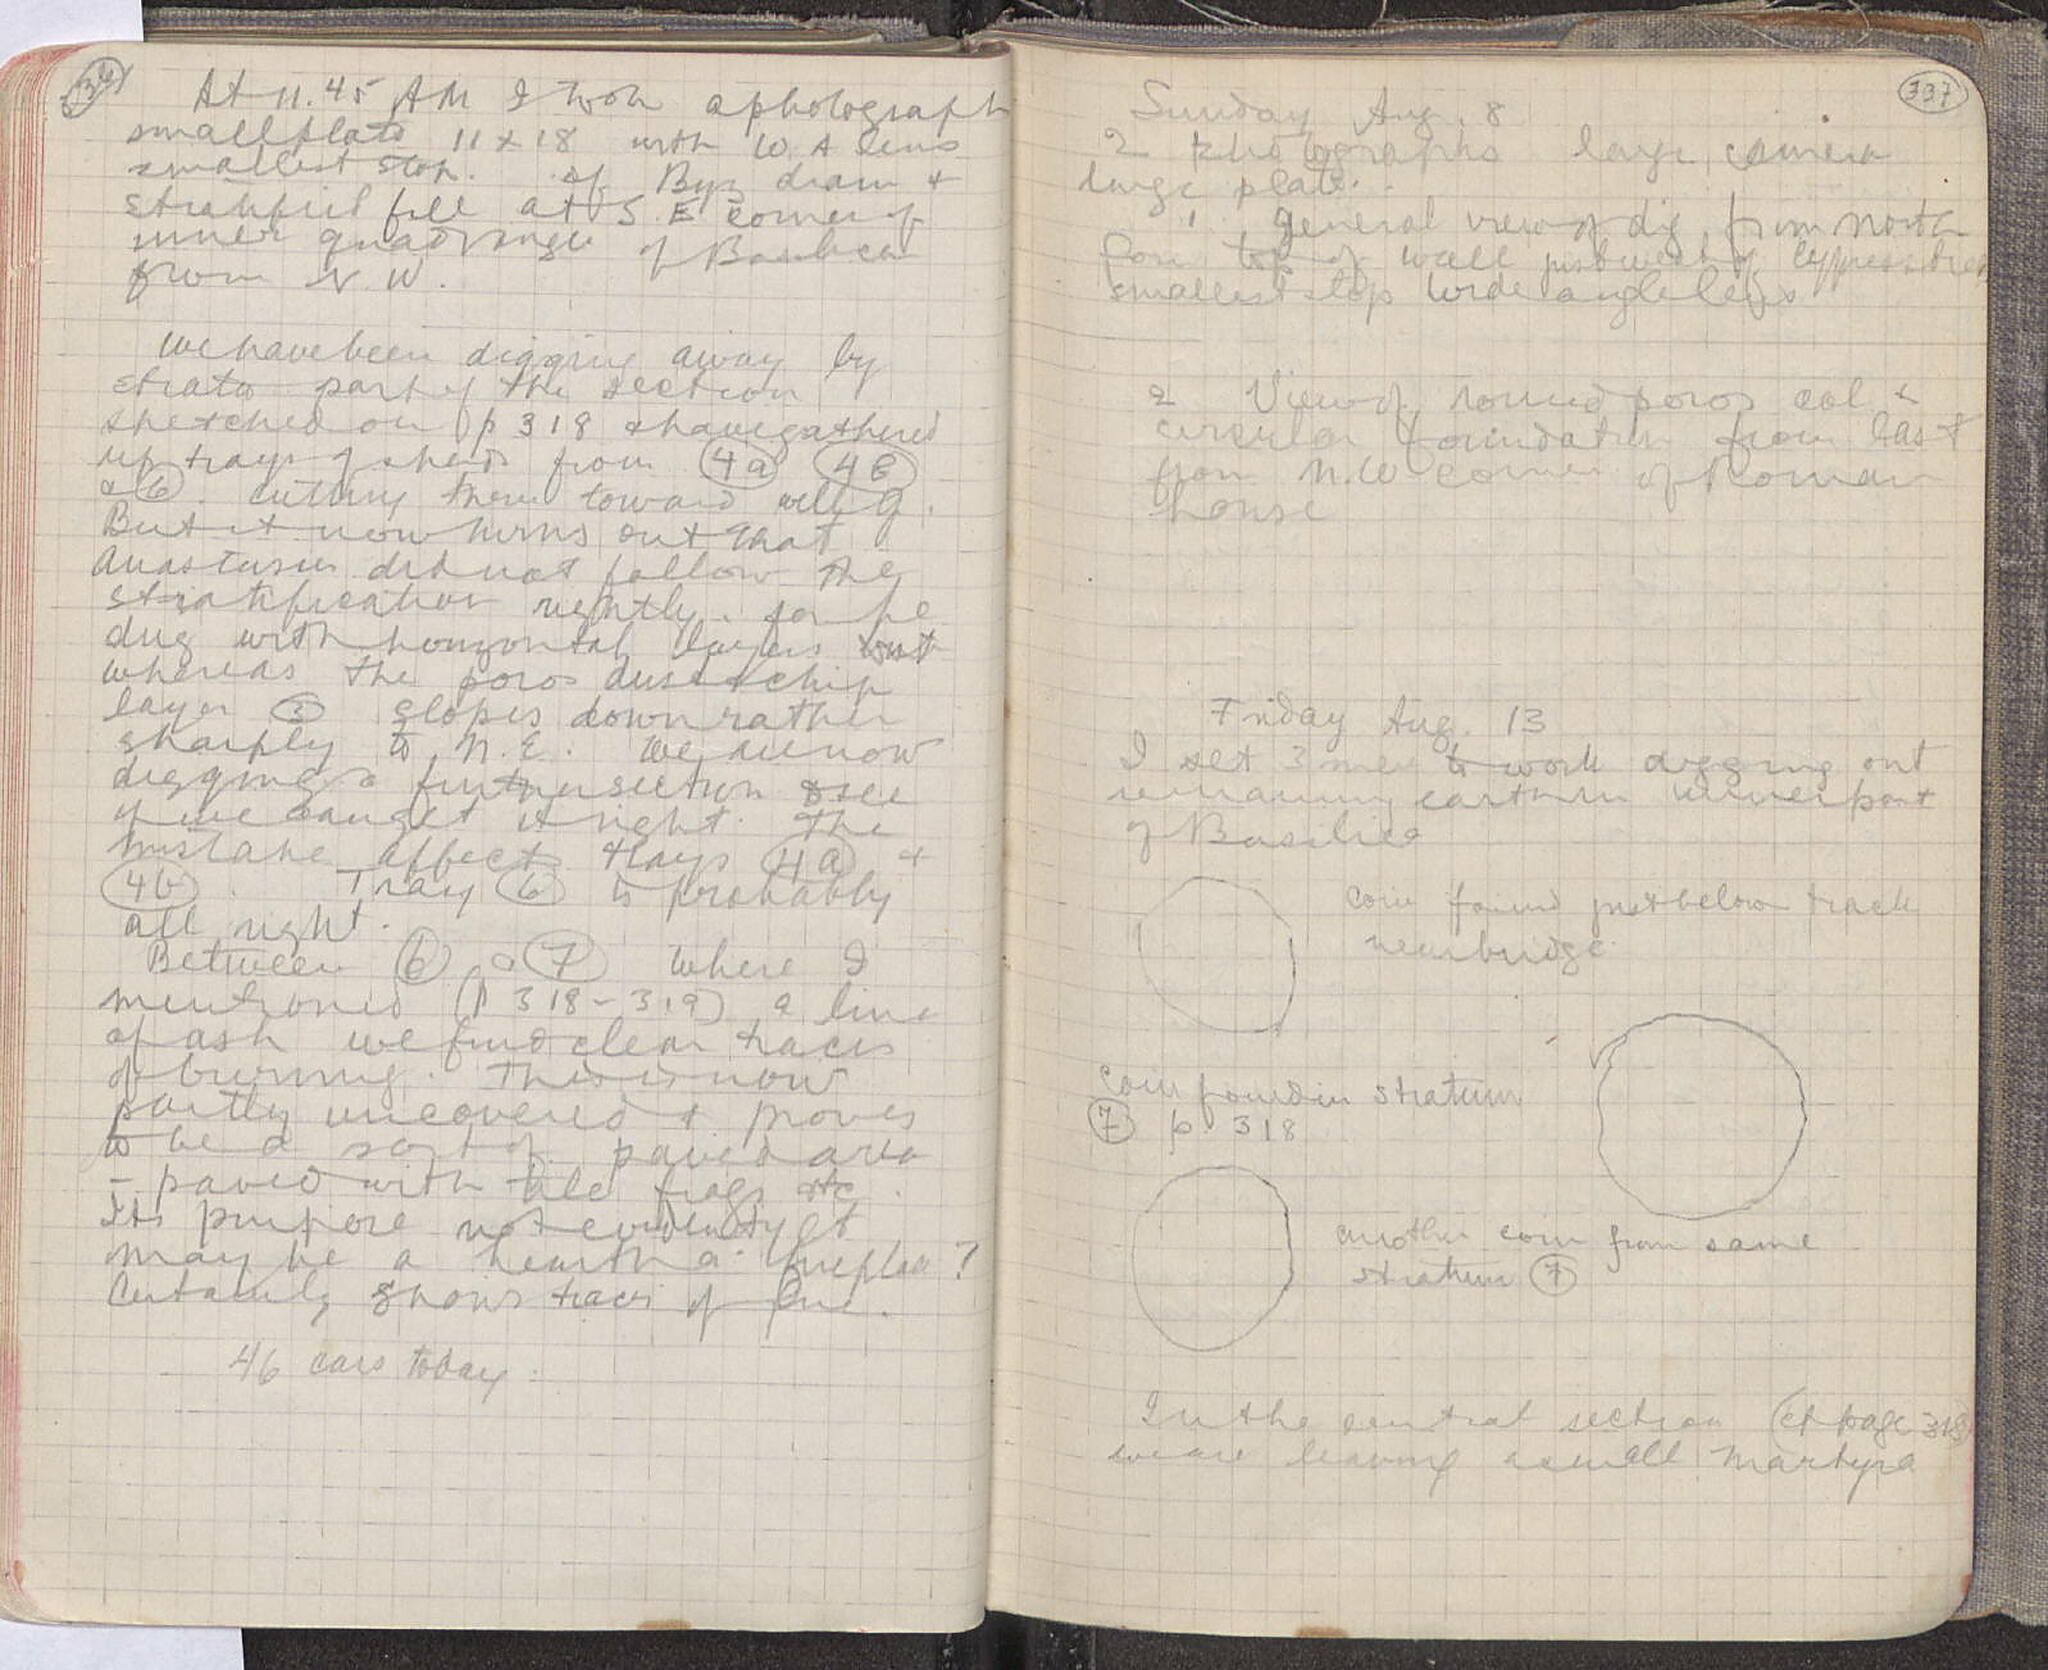 336
At 11.45 AM I took a photograph
small plate 11 x 18 with W A lens
smallest stop. of Byz drain &
stratified fill at S. E corner of
inner quadrangle of Basilica
from N. W.
We have been digging away by
strata part of the section
sketched on p 318 & have gathered
up trays of sherds from 4a 4B
& 6. cutting them toward well 9.
But it now turns out that
Anastasios did not follow the
stratification rightly. for he
dug with horizontal layers
whereas the poros dust & chip
layer 5 slopes down rather
sharply to N. E. We are now
digging a further section to see
if we can get it right. The
mistake affects trays 4a &
4b. Tray 6 is probably
all right.
Between 6 & 7 where I
mentioned (p 318-319) a line
of ash we find clear traces
of burning. This is now
partly uncovered & proves
to be a sort of paved area
- paved with tile frags etc.
Its purpose not evident yet
may be a hearth or fireplace?
Certainly shows traces of fire.
46 cars today.
337
Sunday Aug. 8
2 photographs large camera
large plate.
1 general view of dig from North
from top of wall just west of cypress tree
smallest stop wide angle lens
2 View of round poros col &
circular foundation from East
from N. W corner of Roman
house
Friday Aug. 13
I set 3 men to work digging out
remaining earth in inner part
of Basilica
coin found just below track
near bridge.
coin found in stratum
7 p. 318
another coin from same
stratum 7
In the central section (cf page 318)
we are leaving a small martyra